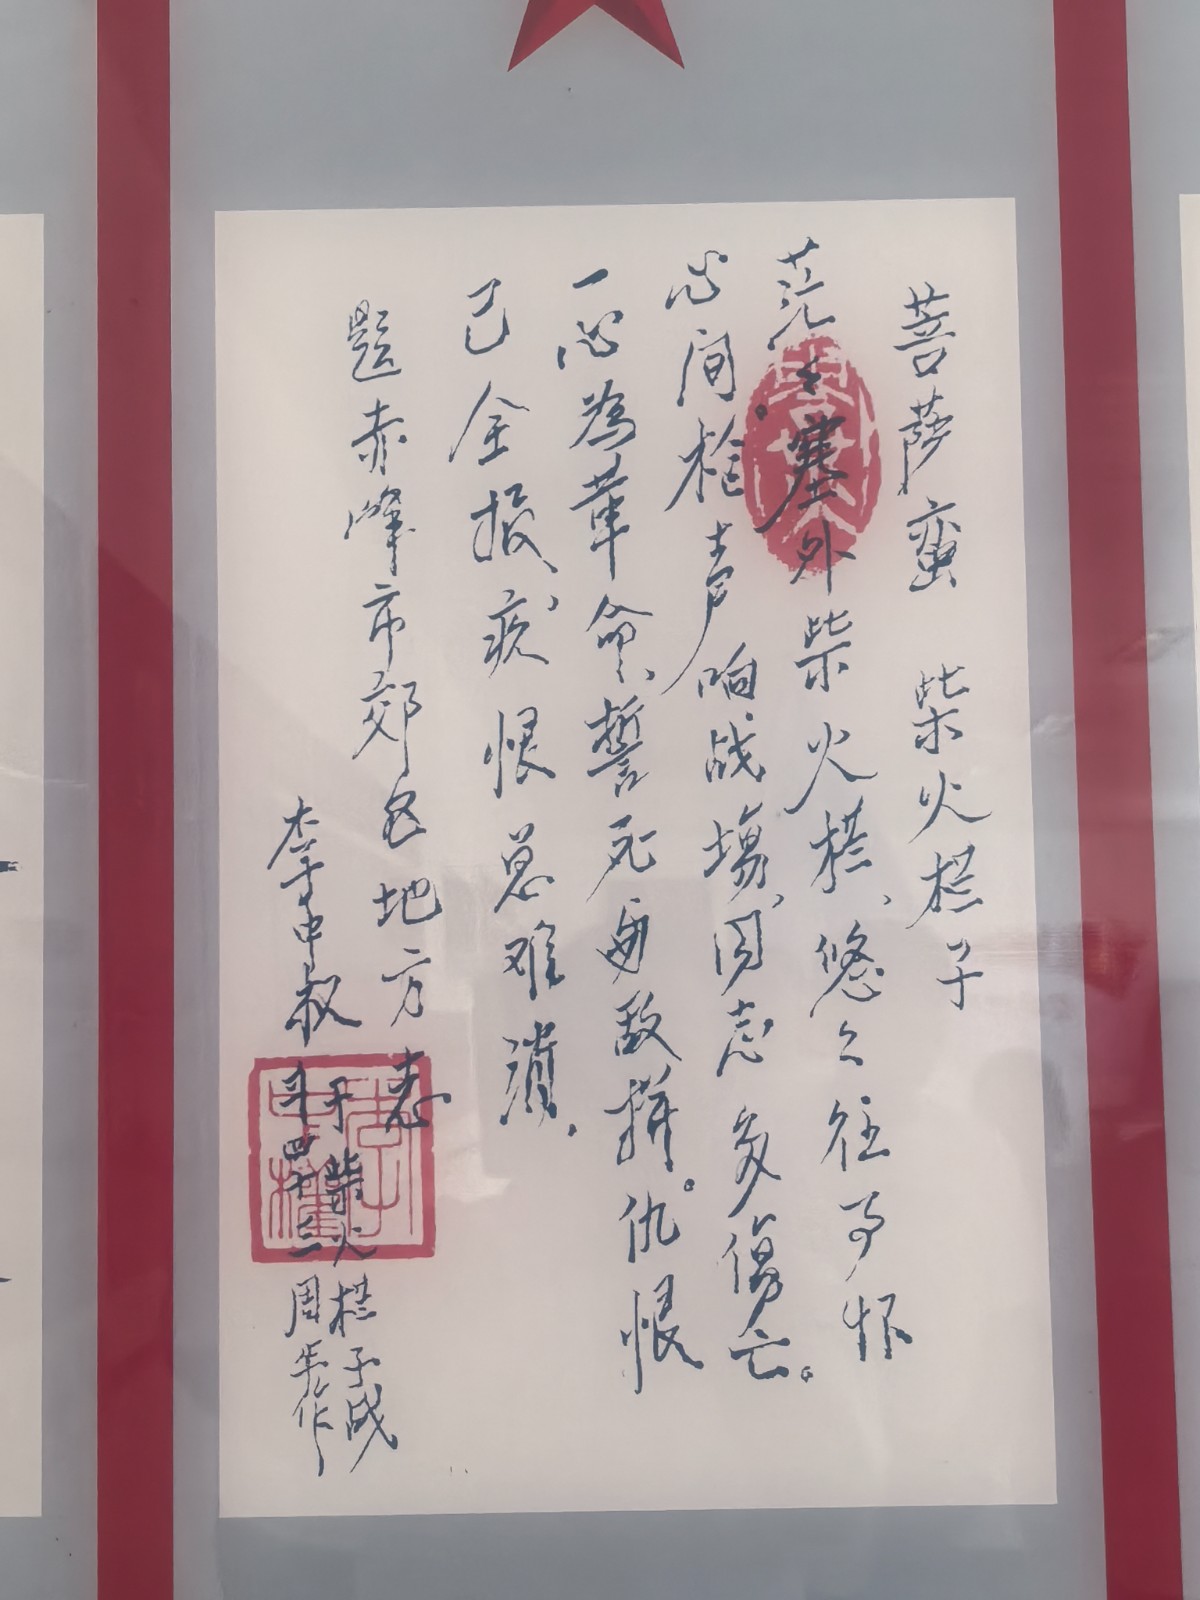 菩萨蛮 柴火栏子
茫々塞外柴火栏、悠々往事怀
心间。枪声响战场、同志多伤亡。
一心为革命、誓死与敌拼。仇恨
已全报、疚恨总难消、
题赤峰市郊区地方志
李中权
于柴火栏子战
斗四十三周年作